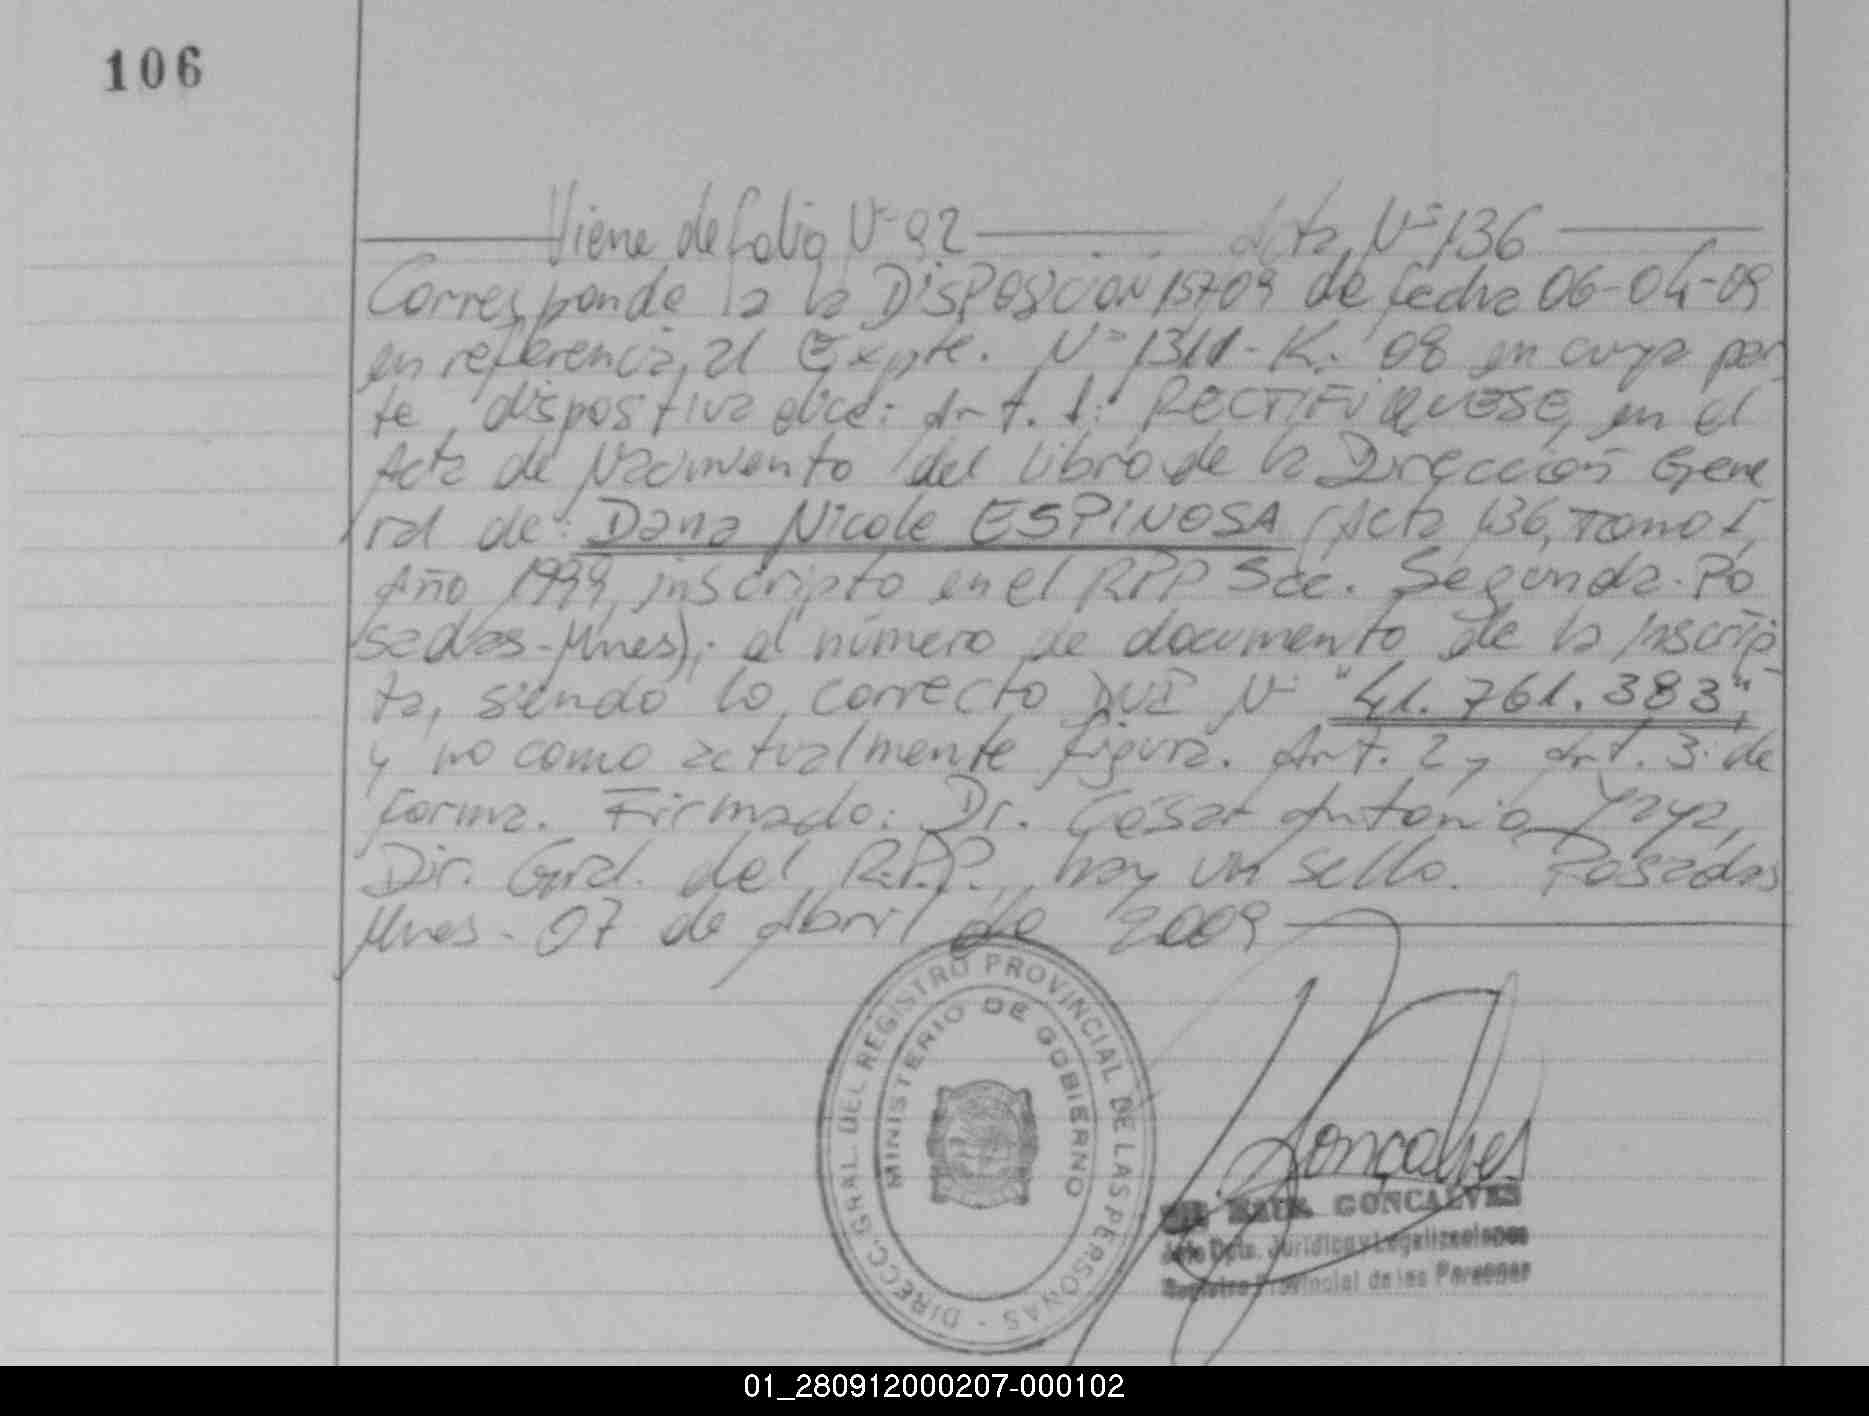 106
Viene de folio Nº 92 Acta Nº 136
Corresponde a la DISPOSICIÓN 157/09 de fecha 06-04-09
en referencia al Expte. Nº 1311-K-08 en cuya par
te dispositiva dice: Art. 1: RECTIFÍQUESE, en el
Acta de Nacimiento del libro de la Dirección Gene
ral de: Dana Nicole ESPINOSA (Acta 136, Tomo I,
Año 1999, inscripto en el RPP Scc. Segunda - Po
sadas-Mnes); el número de documento de la inscrip
ta, siendo lo correcto DNI Nº "41.761.383",
y no como actualmente figura. Art. 2 y Art. 3 de
forma. Firmado: Dr. César Antonio Yaya,
Dir. Gral. del R.P.P., hay un sello. Posadas
Mnes - 07 de Abril de 2009
DIRECC. GRAL. DEL REGISTRO PROVINCIAL DE LAS PERSONAS -
MINISTERIO DE GOBIERNO
Goncalves
GONCALVES
Jefe Dpto. Jurídico y Legalizaciones
Registro Provincial de las Personas
01_280912000207-000102